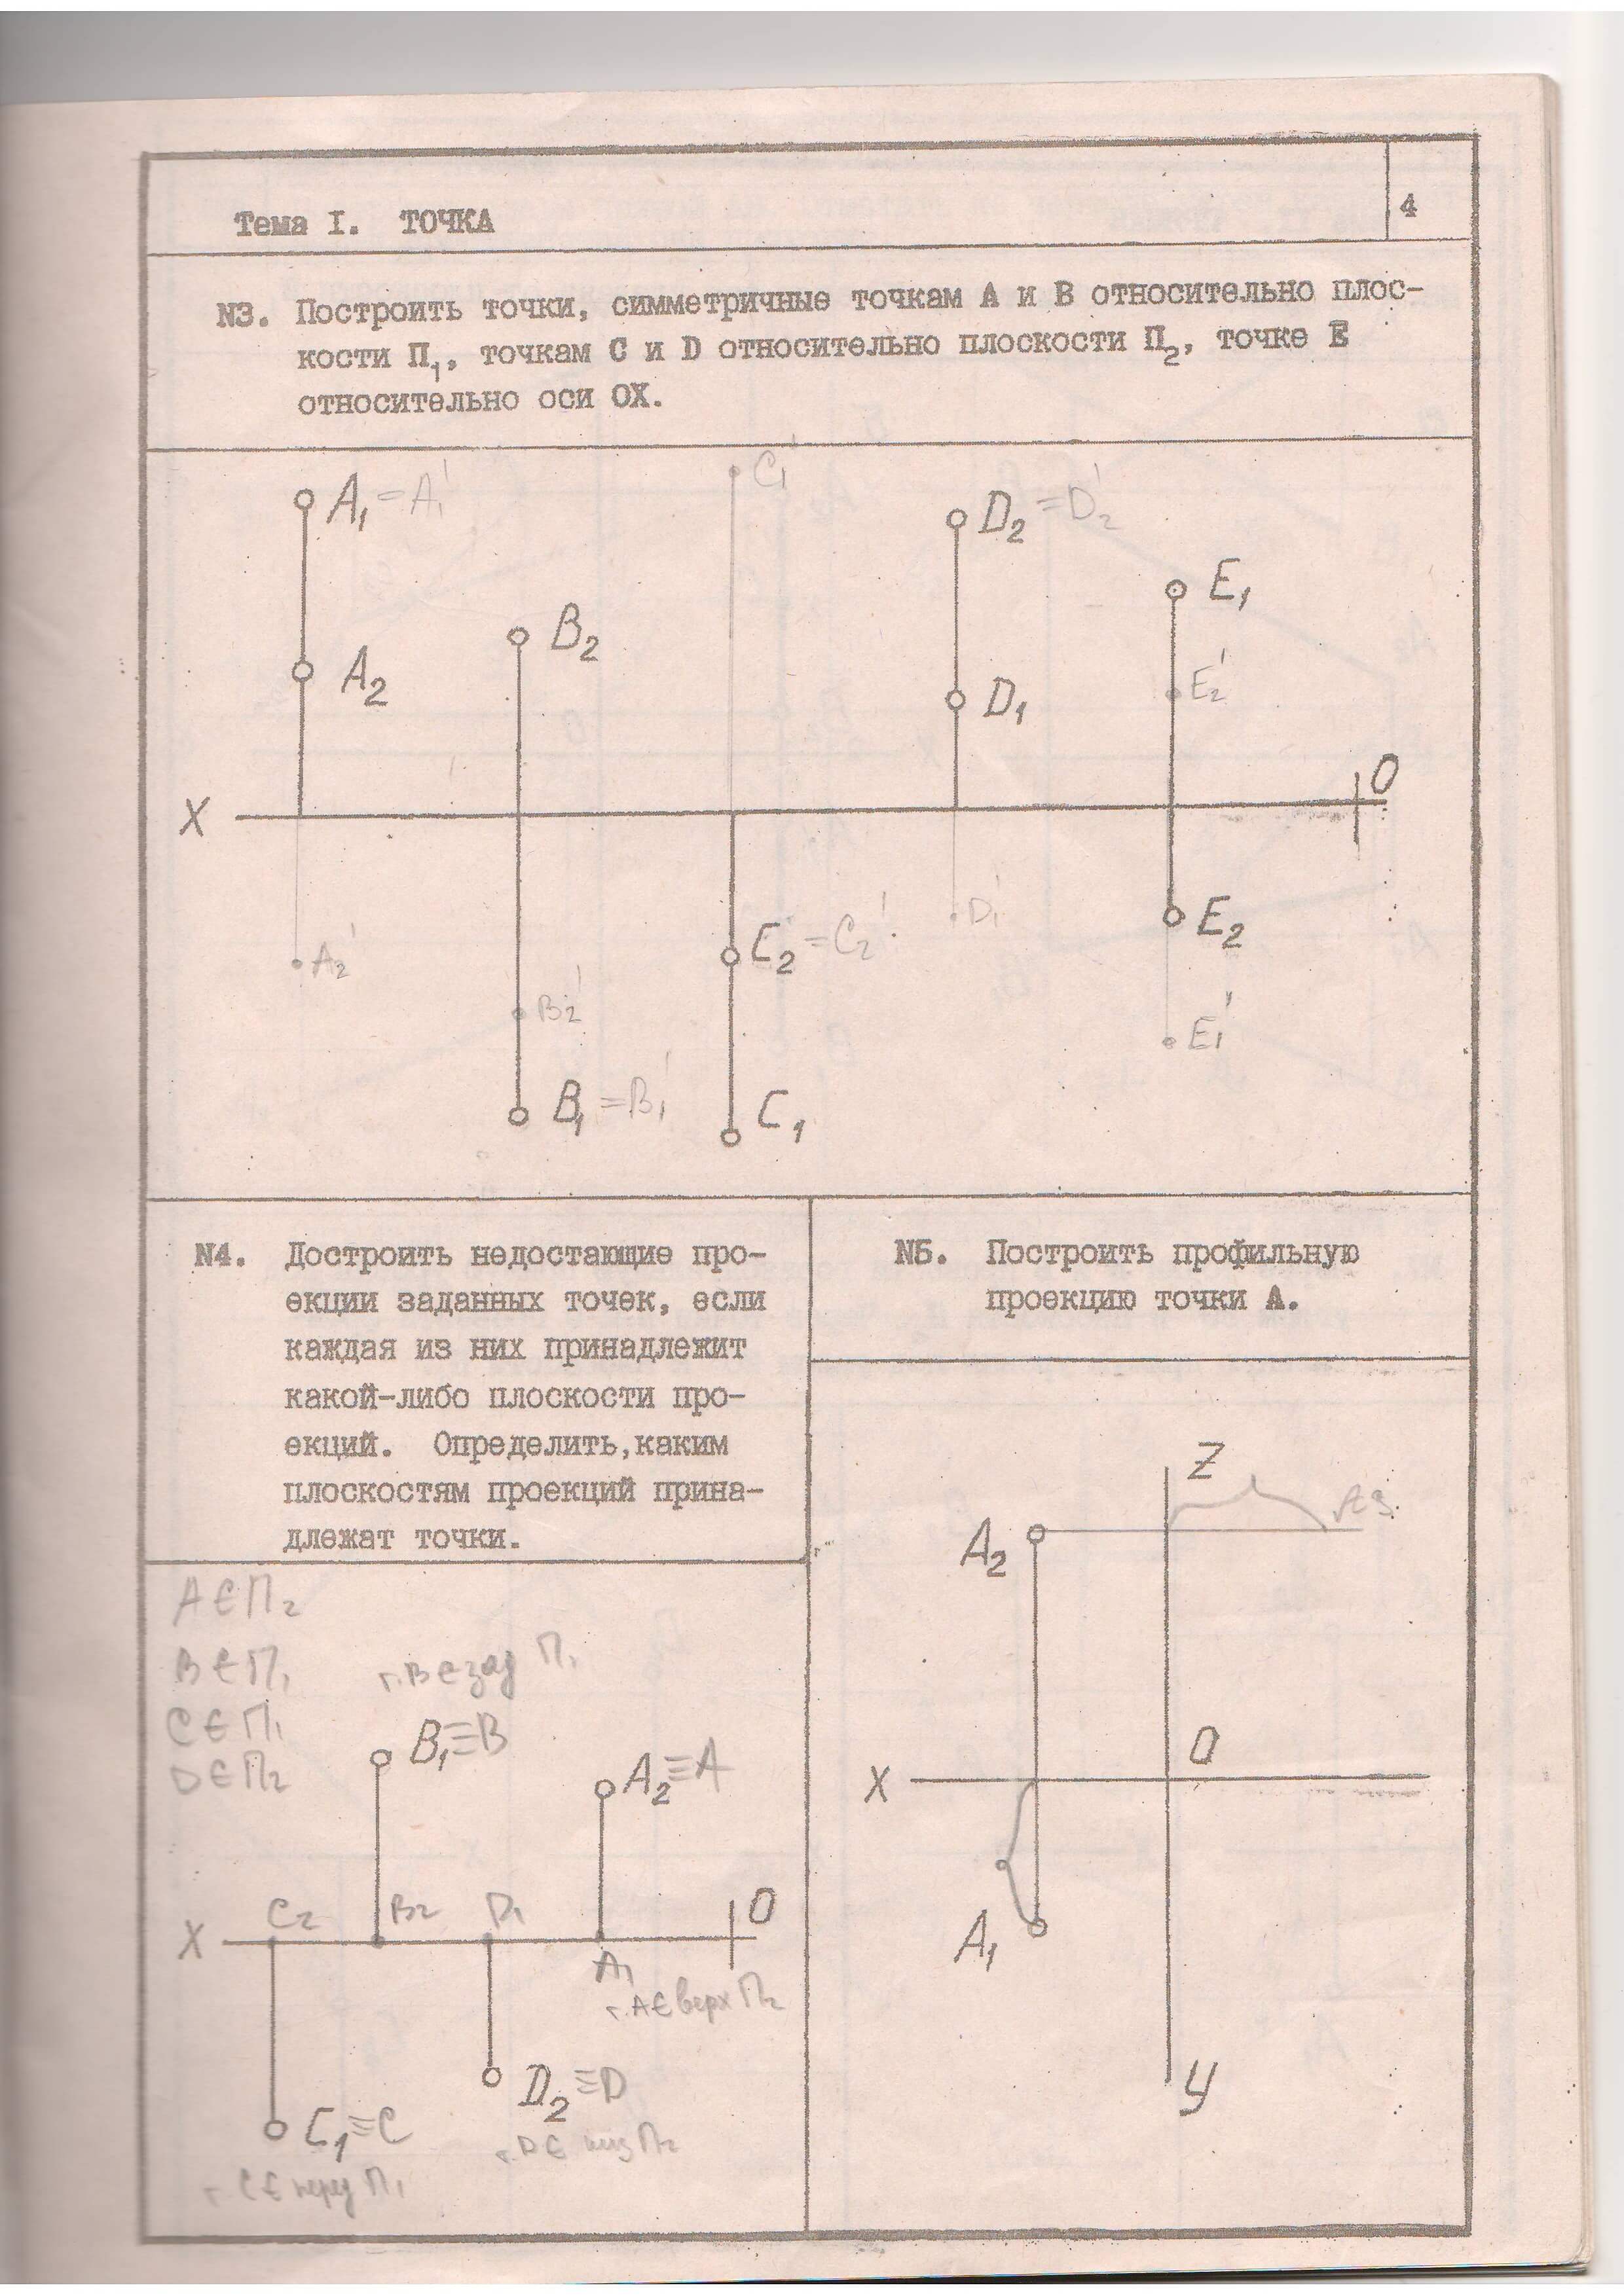 Тема I. ТОЧКА
4
N3. Построить точки, симметричные точкам A и B относительно плос-
кости П₁, точкам C и D относительно плоскости П₂, точке E
относительно оси OX.
C₁'
A₁ = A₁'
D₂ = D₂'
E₁
B₂
A₂
E₂'
D₁
O
X
D₁'
E₂
C₂ = C₂'
A₂'
B₂'
E₁'
B₁ = B₁'
C₁
N4. Достроить недостающие про-
екции заданных точек, если
каждая из них принадлежит
какой-либо плоскости про-
екций. Определить, каким
плоскостям проекций прина-
длежат точки.
A ∈ П₂
B ∈ П₁
т. B ∈ зад П₁
C ∈ П₁
D ∈ П₂
B₁ ≡ B
A₂ ≡ A
C₂
B₂
D₁
O
X
A₁
т. A ∈ верх П₂
D₂ ≡ D
C₁ ≡ C
т. D ∈ низ П₂
т. C ∈ перед П₁
N5. Построить профильную
проекцию точки A.
Z
A₃
A₂
O
X
A₁
y